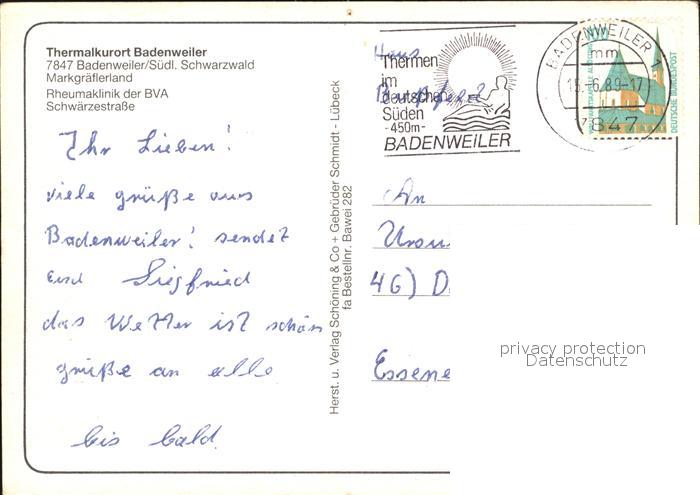 Thermalkurort Badenweiler
7847 Badenweiler/Südl. Schwarzwald
Markgräflerland
Rheumaklinik der BVA
Schwärzestraße
Ihr Lieben!
viele grüße aus
Badenweiler! sendet
Euch Siegfried
das Wetter ist schön
grüße an alle
bis bald.
Herst. u. Verlag Schöning & Co + Gebrüder Schmidt - Lübeck
fa Bestellnr. Bawei 282
Haus
Thermen
im
deutschen
Süden
-450m-
BADENWEILER
BADENWEILER 1
mm
-6.89-17
7847
DEUTSCHE BUNDESPOST
An
46)
Essene
privacy protection
Datenschutz